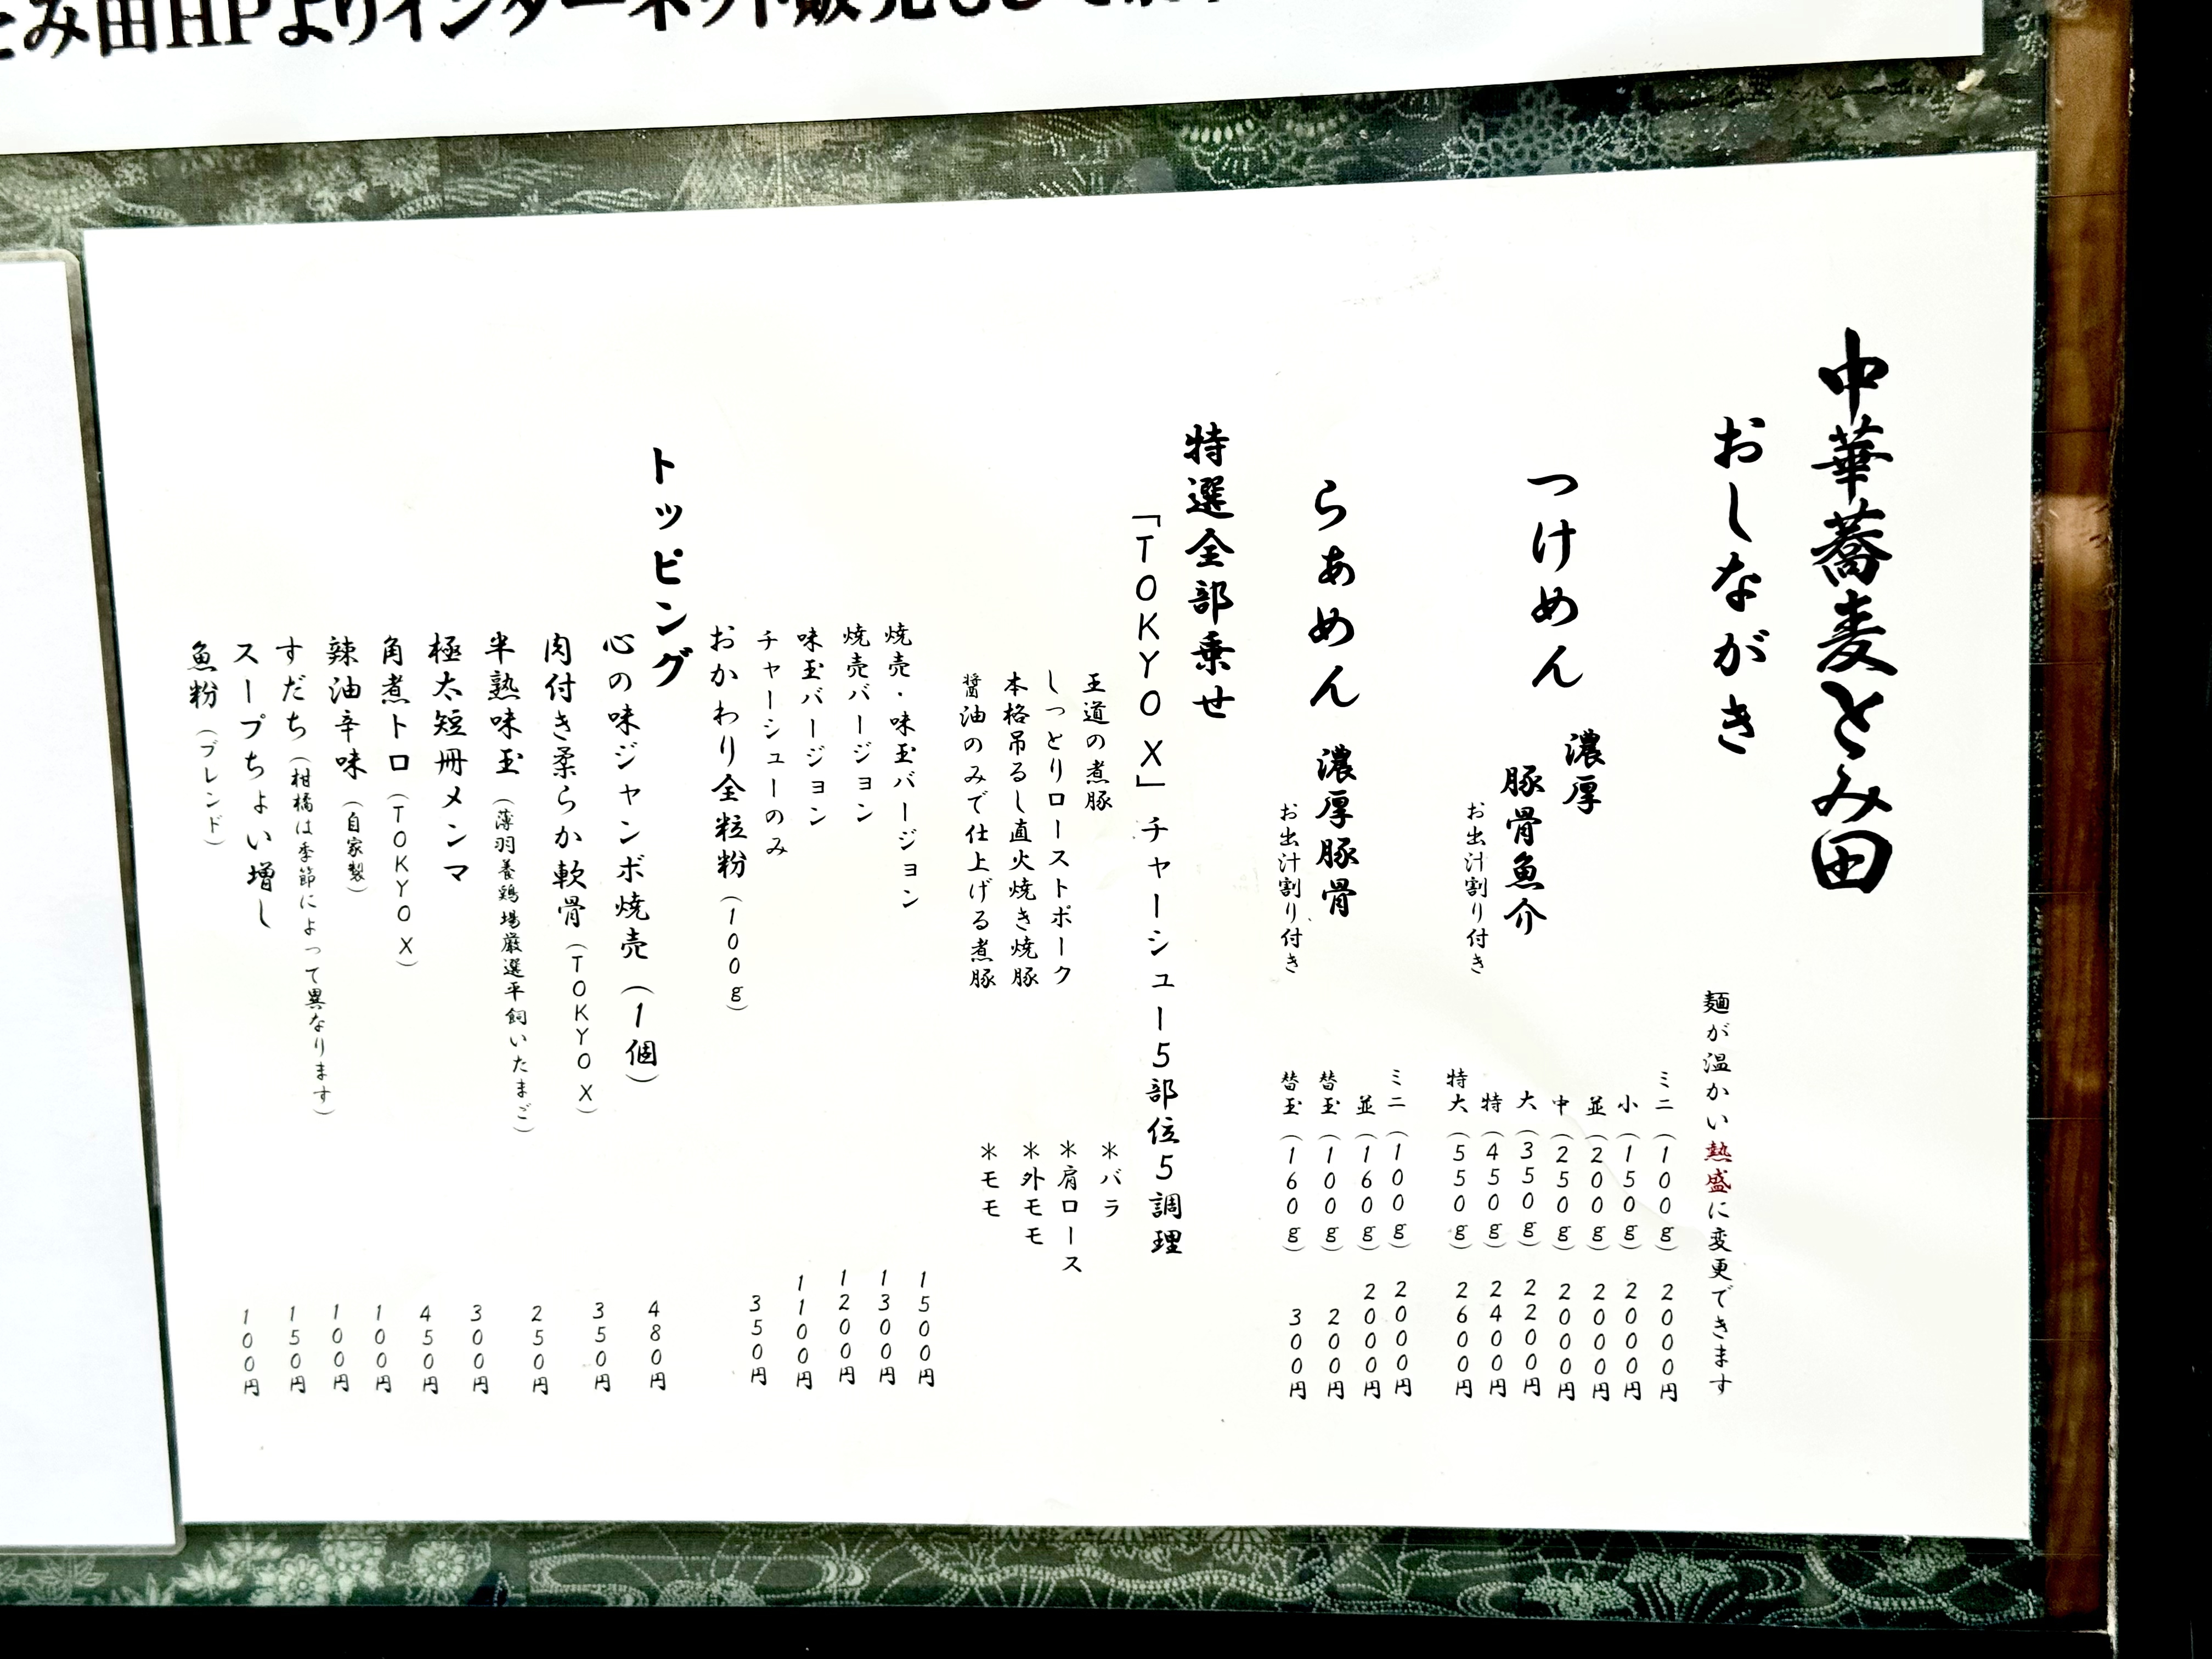 とみ田HPよりインターネット販売も
中華蕎麦とみ田
おしながき
麺が温かい熱盛に変更できます
つけめん
濃厚
豚骨魚介
お出汁割り付き
ミニ(100g) 2000円
小(150g) 2000円
並(200g) 2000円
中(250g) 2000円
大(350g) 2200円
特(450g) 2400円
特大(550g) 2600円
らぁめん 濃厚豚骨
お出汁割り付き
ミニ(100g) 2000円
並(160g) 2000円
替玉(100g) 200円
替玉(160g) 300円
特選全部乗せ
「TOKYO X」チャーシュー5部位5調理
王道の煮豚 *バラ
しっとりローストポーク *肩ロース
本格吊るし直火焼き焼豚 *外モモ
醤油のみで仕上げる煮豚 *モモ
焼売・味玉バージョン 1500円
焼売バージョン 1300円
味玉バージョン 1200円
チャーシューのみ 1100円
おかわり全粒粉(100g) 350円
トッピング
心の味ジャンボ焼売(1個) 480円
肉付き柔らか軟骨(TOKYO X) 350円
半熟味玉(薄羽養鶏場厳選平飼いたまご) 250円
極太短冊メンマ 300円
角煮トロ(TOKYO X) 450円
辣油辛味(自家製) 100円
すだち(柑橘は季節によって異なります) 100円
スープちょい増し 150円
魚粉(ブレンド) 100円